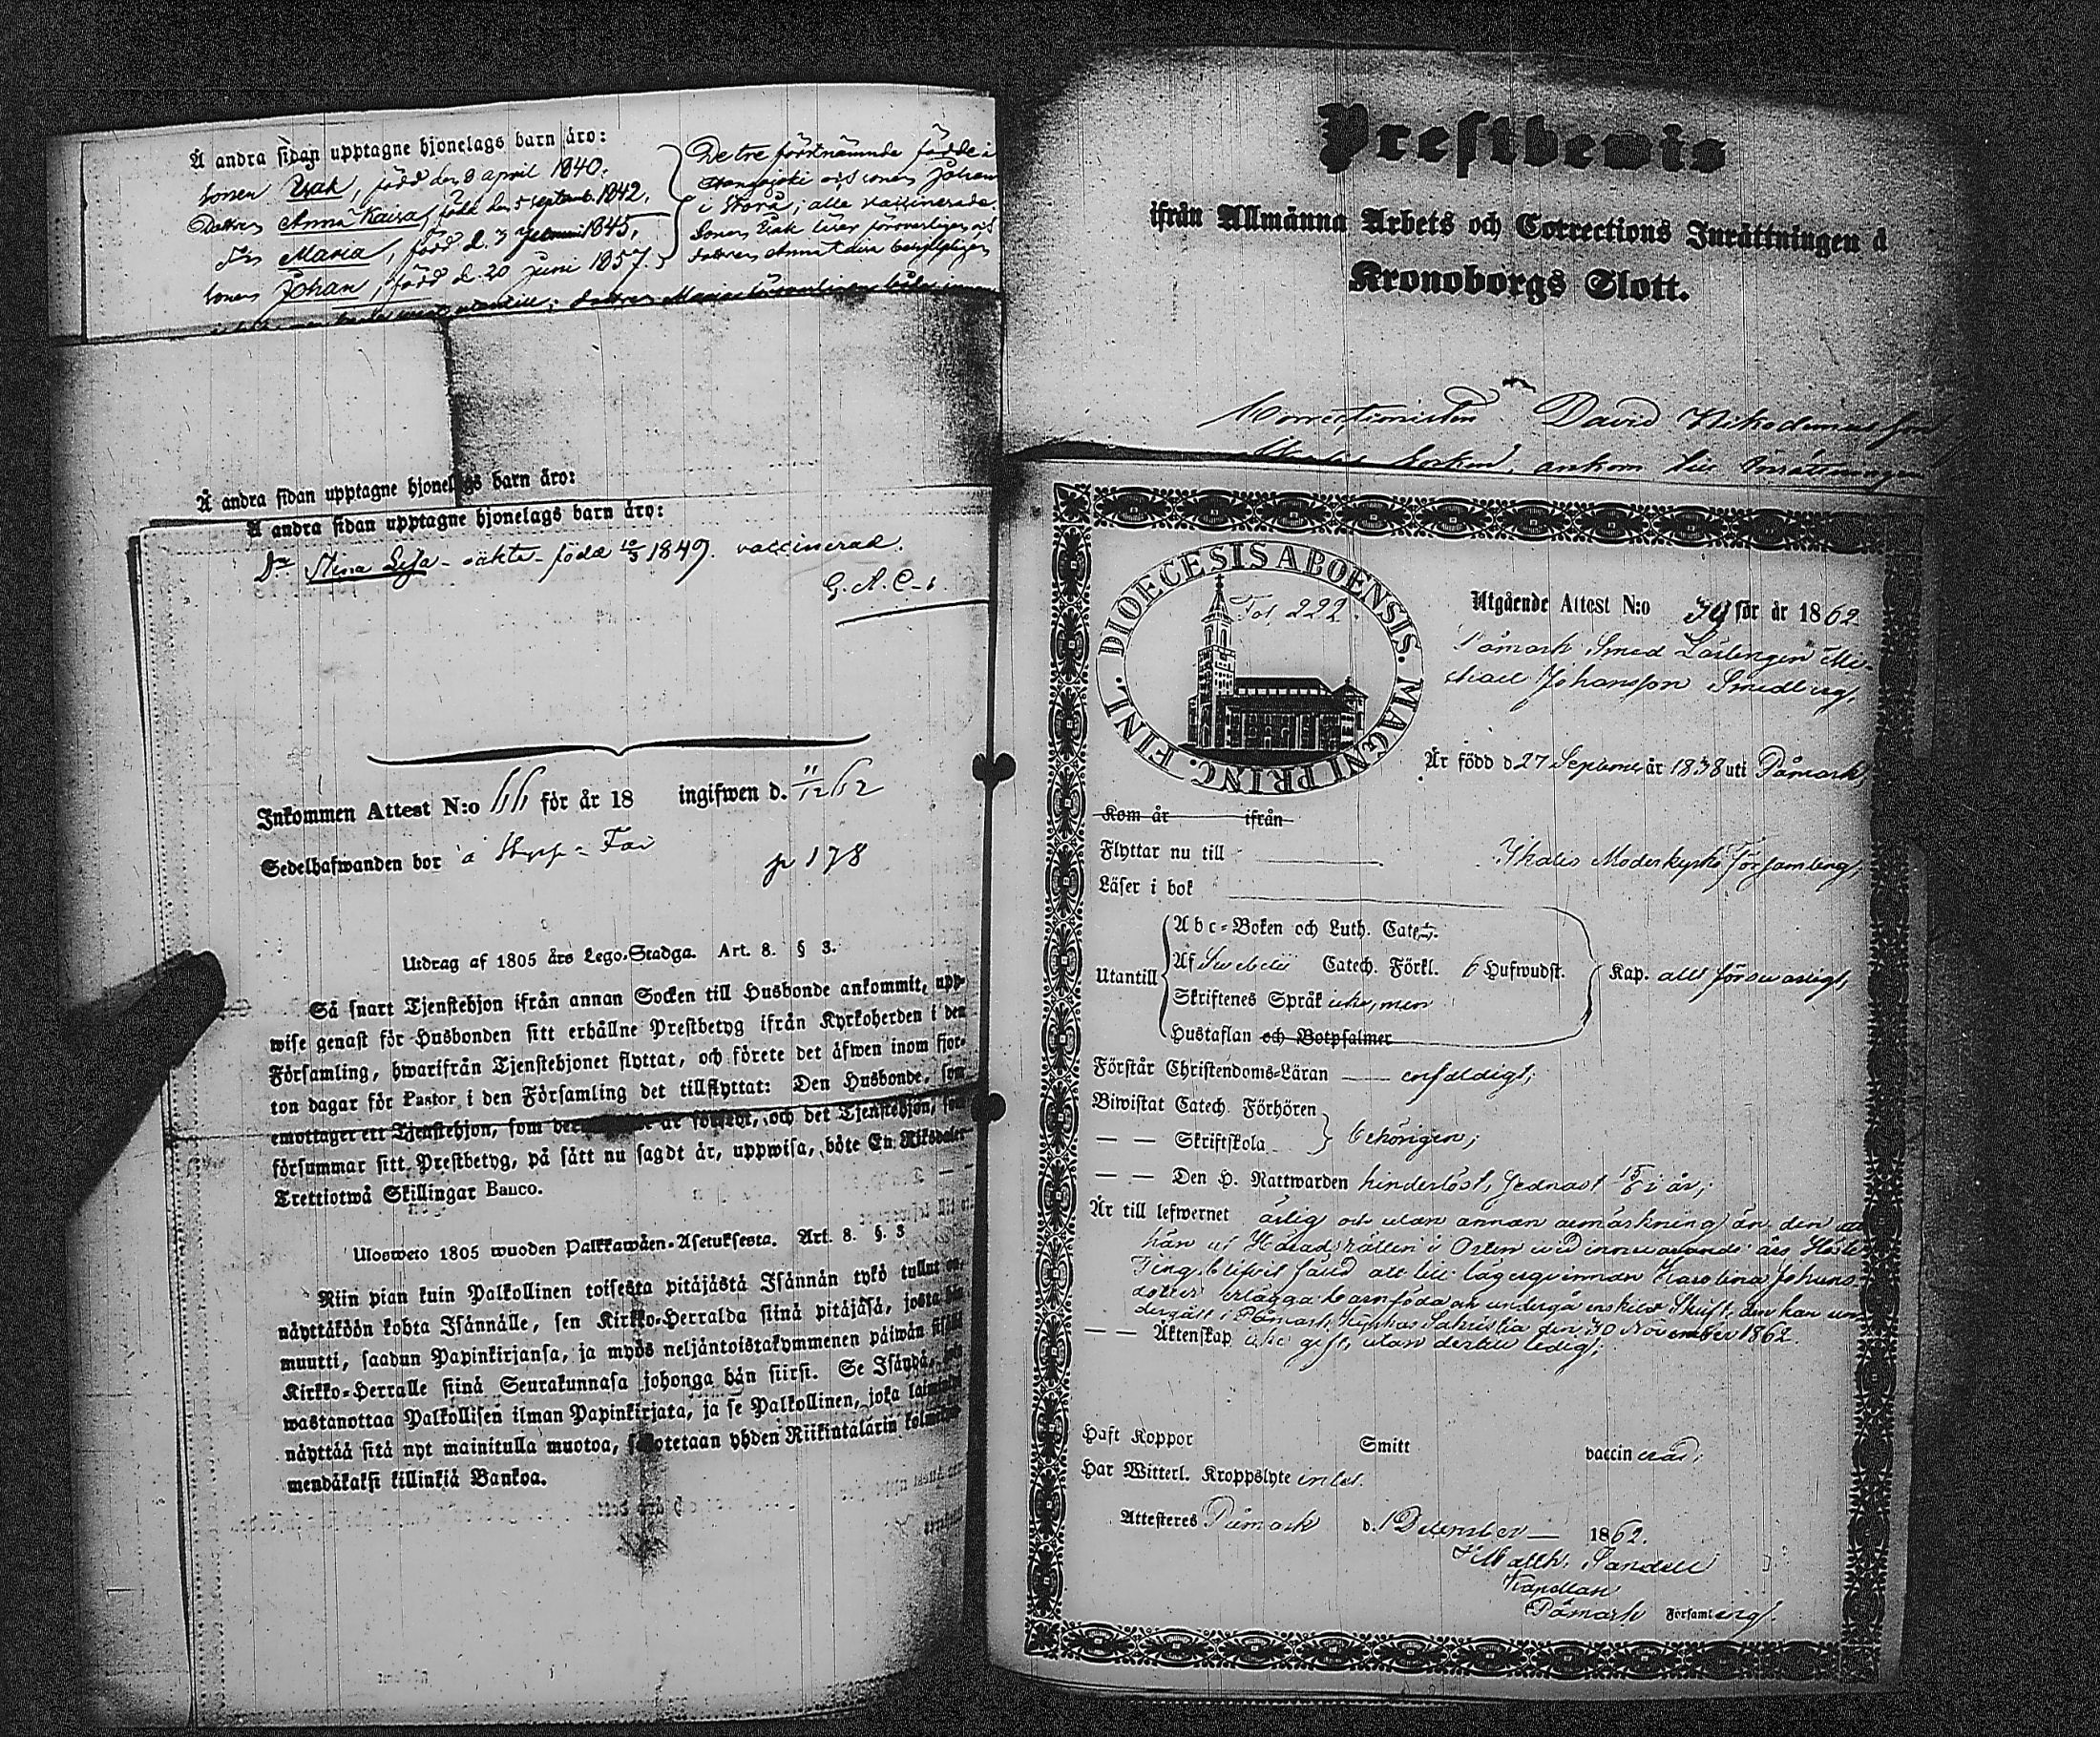 Å andra sidan upptagne hjonelags barn äro:
Sonen Isak, född den 8 april 1840.
Dottren Anna Kaisa, född den 5 septemb. 1842,
Maria, född d. 3 1845,
Sonen Johan, född d. 20 Juni 1857.
De tre förstnämnde födde i
och sonen Johan
i Storå; alla vaccinerade.
Sonen Isak läser försvarligen och
dottren Anna Kaisa
dottren Maria
Å andra sidan upptagne hjonelags barn äro:
Å andra sidan upptagne hjonelags barn äro:
Dr Stina Lisa - oäkta - född 10/3 1849. vaccinerad.
G. A. C-s.
Inkommen Attest N:o 66 för år 18 ingifwen d. 11/12 62
Sedelhafwanden bor å
p 178
Utdrag af 1805 års Lego-Stadga. Art. 8. § 3.
Så snart Tjenstehjon ifrån annan Socken till Husbonde ankommit, upp-
wise genast för Husbonden sitt erhållne Prestbetyg ifrån Kyrkoherden i den
Församling, hwarifrån Tjenstehjonet flyttat, och förete det äfwen inom fjor-
ton dagar för Pastor i den Församling det tillflyttat: Den Husbonde, som
emottager ett Tjenstehjon, som är försedt, och det Tjenstehjon, som
försummar sitt Prestbetyg, på sätt nu sagdt är, uppwisa, böte En Riksdaler
Trettiotwå Skillingar Banco.
Ulosweto 1805 wuoden Palkkawäen-Asetuksesta. Art. 8. §. 3
Niin pian kuin Palkollinen toisesta pitäjästä Isännän tykö tullut on,
näyttäköön kohta Isännälle, sen Kirkko-Herralda siinä pitäjäsä, josta hän
muutti, saadun Papinkirjansa, ja myös neljäntoistakymmenen päiwän sisällä
Kirkko-Herralle siinä Seurakunnasa johonga hän siirsi. Se Isändä, joka
wastanottaa Palkollisen ilman Papinkirjata, ja se Palkollinen, joka laiminlyö
näyttää sitä nyt mainitulla muotoa, sakotetaan yhden Riikintalarin kolme-
mendäkaksi killinkiä Bankoa.
Prestbewis
ifrån Allmänna Arbets och Corrections Inrättningen å
Kronoborgs Slott.
Correctionisten David Nikodemus
Socken, ankom till Inrättningen
DIOECESIS ABOENSIS. MAGNI PRINC. FINL.
Fol. 222.
Utgående Attest N:o 39 för år 1862
Påmark Smed Lärlingen Mi-
chael Johansson Smedberg,
Är född d 27 September år 1838 uti Påmark,
Kom år ifrån
Flyttar nu till Ikalis Moderkyrko Församling;
Läser i bok
Utantill
Abc-Boken och Luth. Catech.
Af Swebelii Catech. Förkl. 6 Hufwudst.
Skriftenes Språk icke, men
Hustaflan och Botpsalmer
Kap. allt försvarligt;
Förstår Christendoms-Läran enfaldigt;
Biwistat Catech. Förhören
— — Skriftskola
behörigen;
— — Den H. Nattwarden hinderlöst, sednast 15/6 i år;
Är till lefwernet ärlig och utan annan anmärkning än den att
han af Häradsrätten i Orten wid innewarande års Höste
Ting blifvit fäld att till lägerqvinnan Karolina Johans-
dotter erlägga barnföda och undergå enskild Skrift, den han un-
dergått i Påmark Kyrkas Sakristia den 30 November 1862.
— — Äktenskap icke gift, utan dertill ledig;
Haft Koppor Smitt vaccinerad;
Har Witterl. Kroppslyte intet.
Attesteres Påmark d. 1 December 1862.
Matth. Sandell
Kapellan
Påmark Församling.